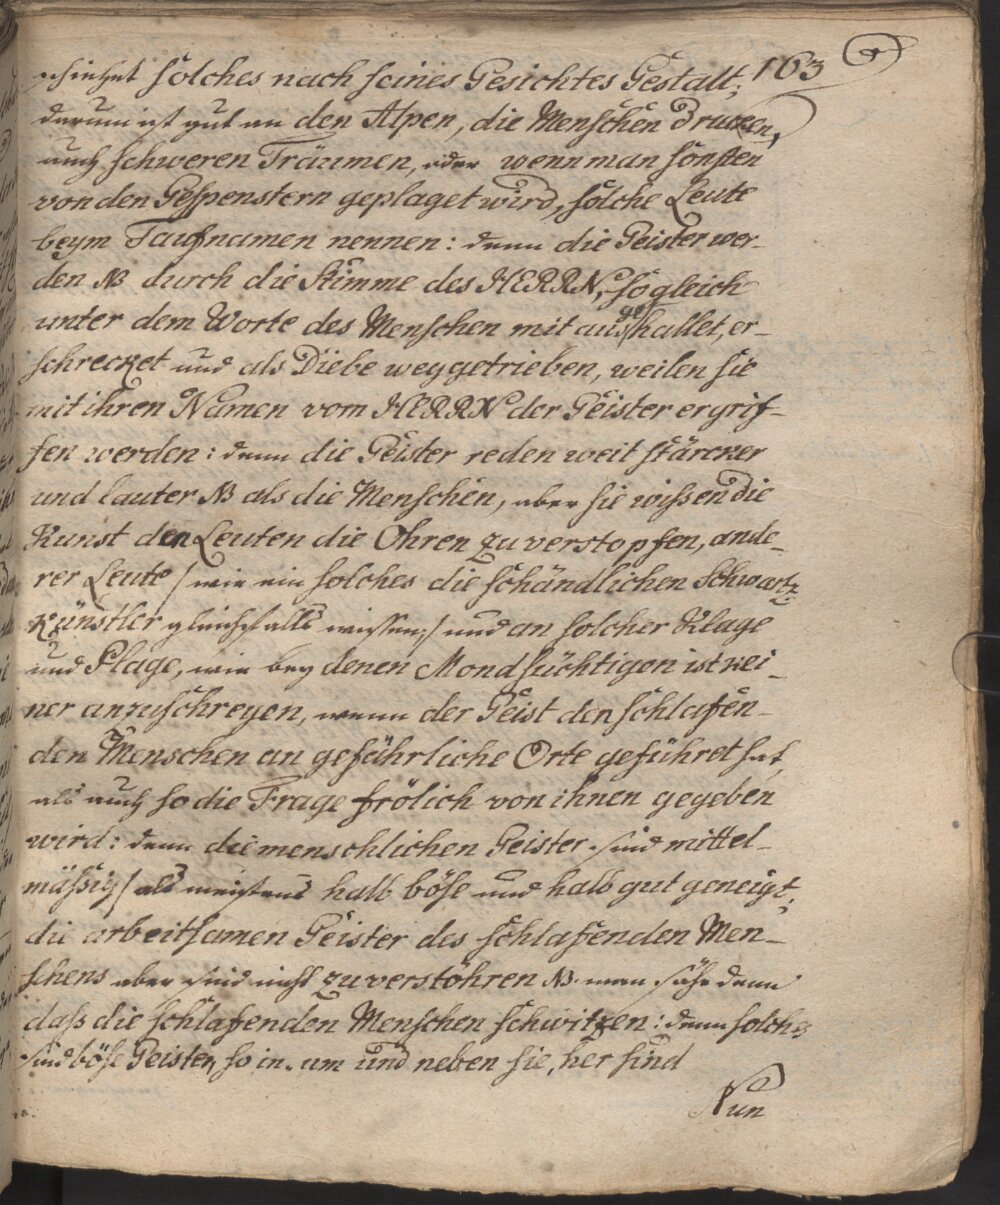 163
schiehet solches nach seines Gesichtes Gestalt;
darum ist gut an den Alpen, die Menschen drucken,
auch schweren Träumen, oder wenn man sonsten
von den Gespenstern geplaget wird, solche Leute
beym Taufnamen nennen: denn die Geister wer-
den NB durch die Stimme des HERRN, so gleich
unter dem Worte des Menschen mit ausgehallet, er-
schrecket und als Diebe weggetrieben, weilen sie
mit ihren Namen vom HERRN der Geister ergrif-
fen werden: denn die Geister reden weit stärcker
und lauter NB als die Menschen, aber sie wißen die
Kunst den Leuten die Ohren zu verstopfen, ande-
rer Leute / wie ein solches die schändlichen Schwartz-
Künstler gleichfalls wissen;/ und an solcher Klage
und Plage, wie bey denen Mondsüchtigen ist kei-
ner anzuschreyen, wenn der Geist den schlafen-
den Menschen an gefährliche Orte geführet hat,
als auch so die Frage frölich von ihnen gegeben
wird: denn die menschlichen Geister sind mittel-
mäßig / als meistens halb böse und halb gut geneigt;
die arbeitsamen Geister des schlafenden Men-
schens aber sind nicht zu verstöhren NB. man sähe denn
daß die schlafenden Menschen schwitzen: denn solches
sind böse Geister, so in, um und neben sie, her sind
Nun